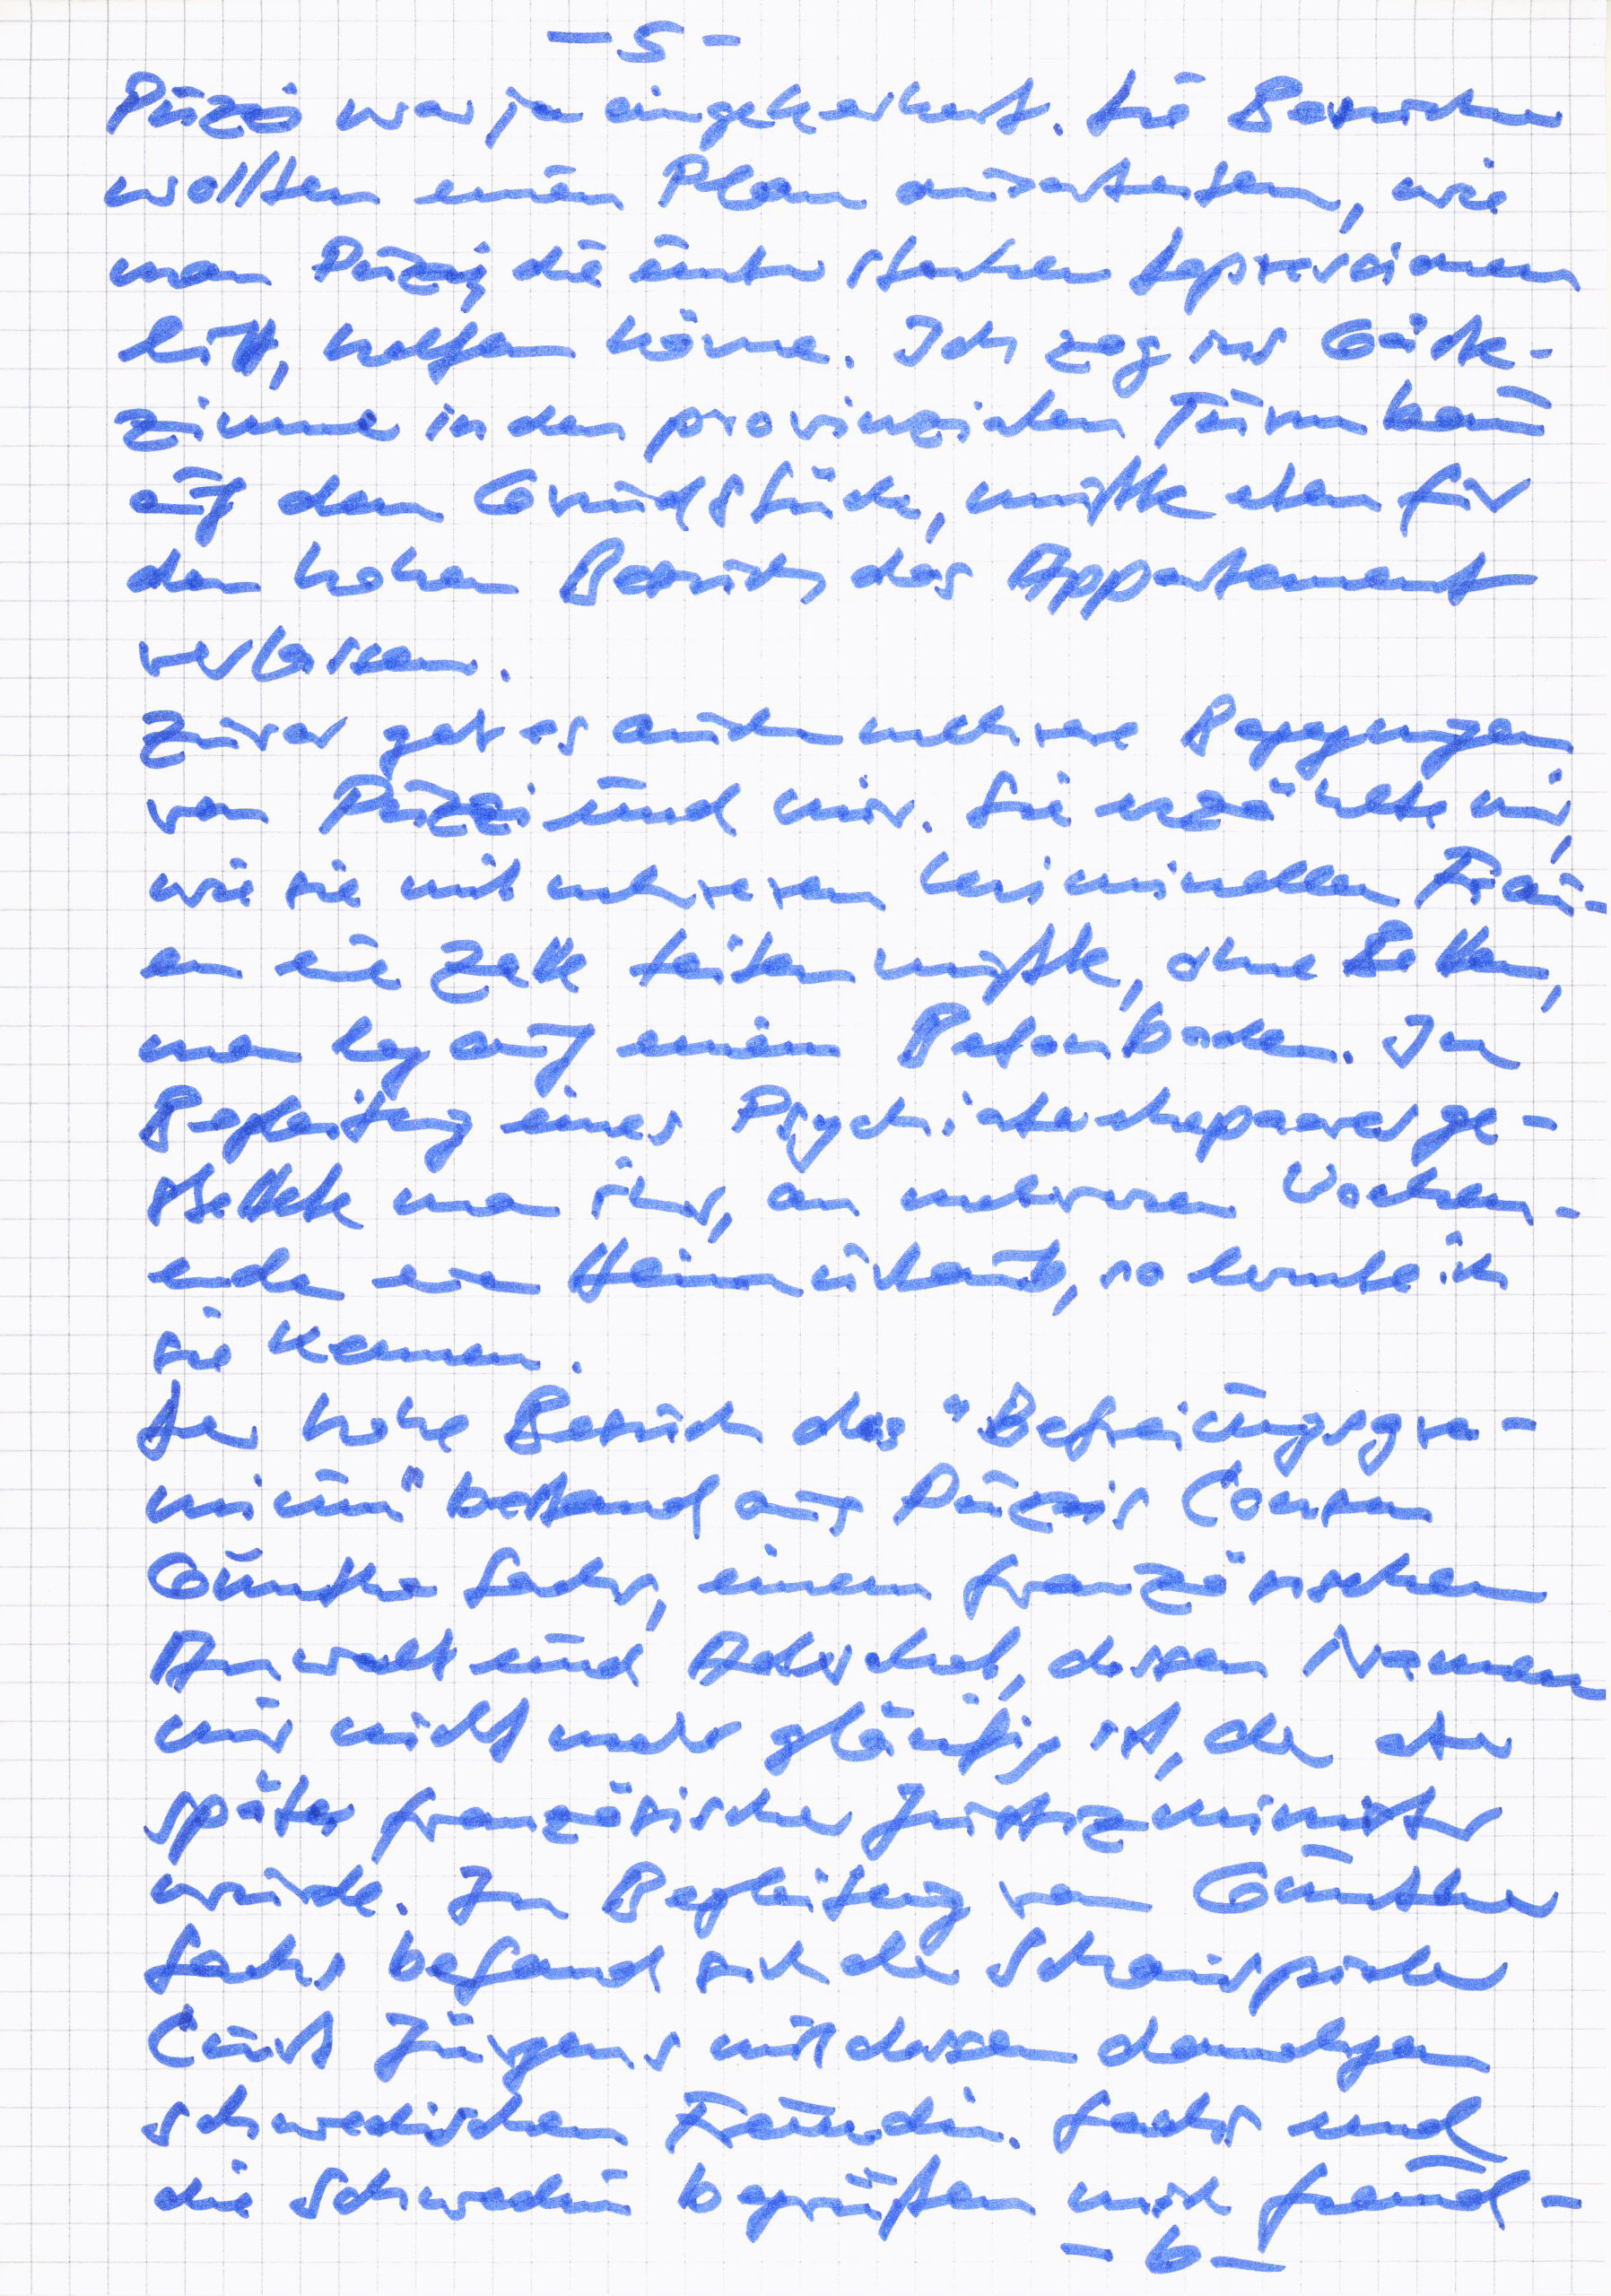 - 5 -
Puzzi war ja eingekerkert. Die Besucher
wollten einen Plan ausarbeiten, wie
man Puzzi, die unter starken Depressionen
litt, helfen könne. Ich zog ins Gäste-
zimmer in den provinziellen Turmbau
auf dem Grundstück, mußte eben für
den hohen Besuch das Appartement
verlassen.
Zuvor gab es auch mehrere Begegnungen
von Puzzi und mir. Sie erzählte mir,
wie sie mit mehreren kriminellen Frau-
en eine Zelle teilen mußte, ohne Betten,
man lag auf einem Betonboden. In
Begleitung eines Psychiaterehepaares ge-
stattete man ihr, an mehreren Wochen-
enden einen Heimurlaub, so lernte ich
sie kennen.
Der hohe Besuch des "Befreiungsgre-
mium" bestand aus Puzzis Cousin
Gunther Sachs, einem französischen
Anwalt und Adelschef, dessen Namen
mir nicht mehr gläufig ist, der aber
später französischer Justizminister
wurde. In Begleitung von Gunther
Sachs befand sich der Schauspieler
Curt Jürgens mit dessen damaligen
schwedischen Freundin. Sachs und
die Schwedin begrüßten mich freund-
- 6 -